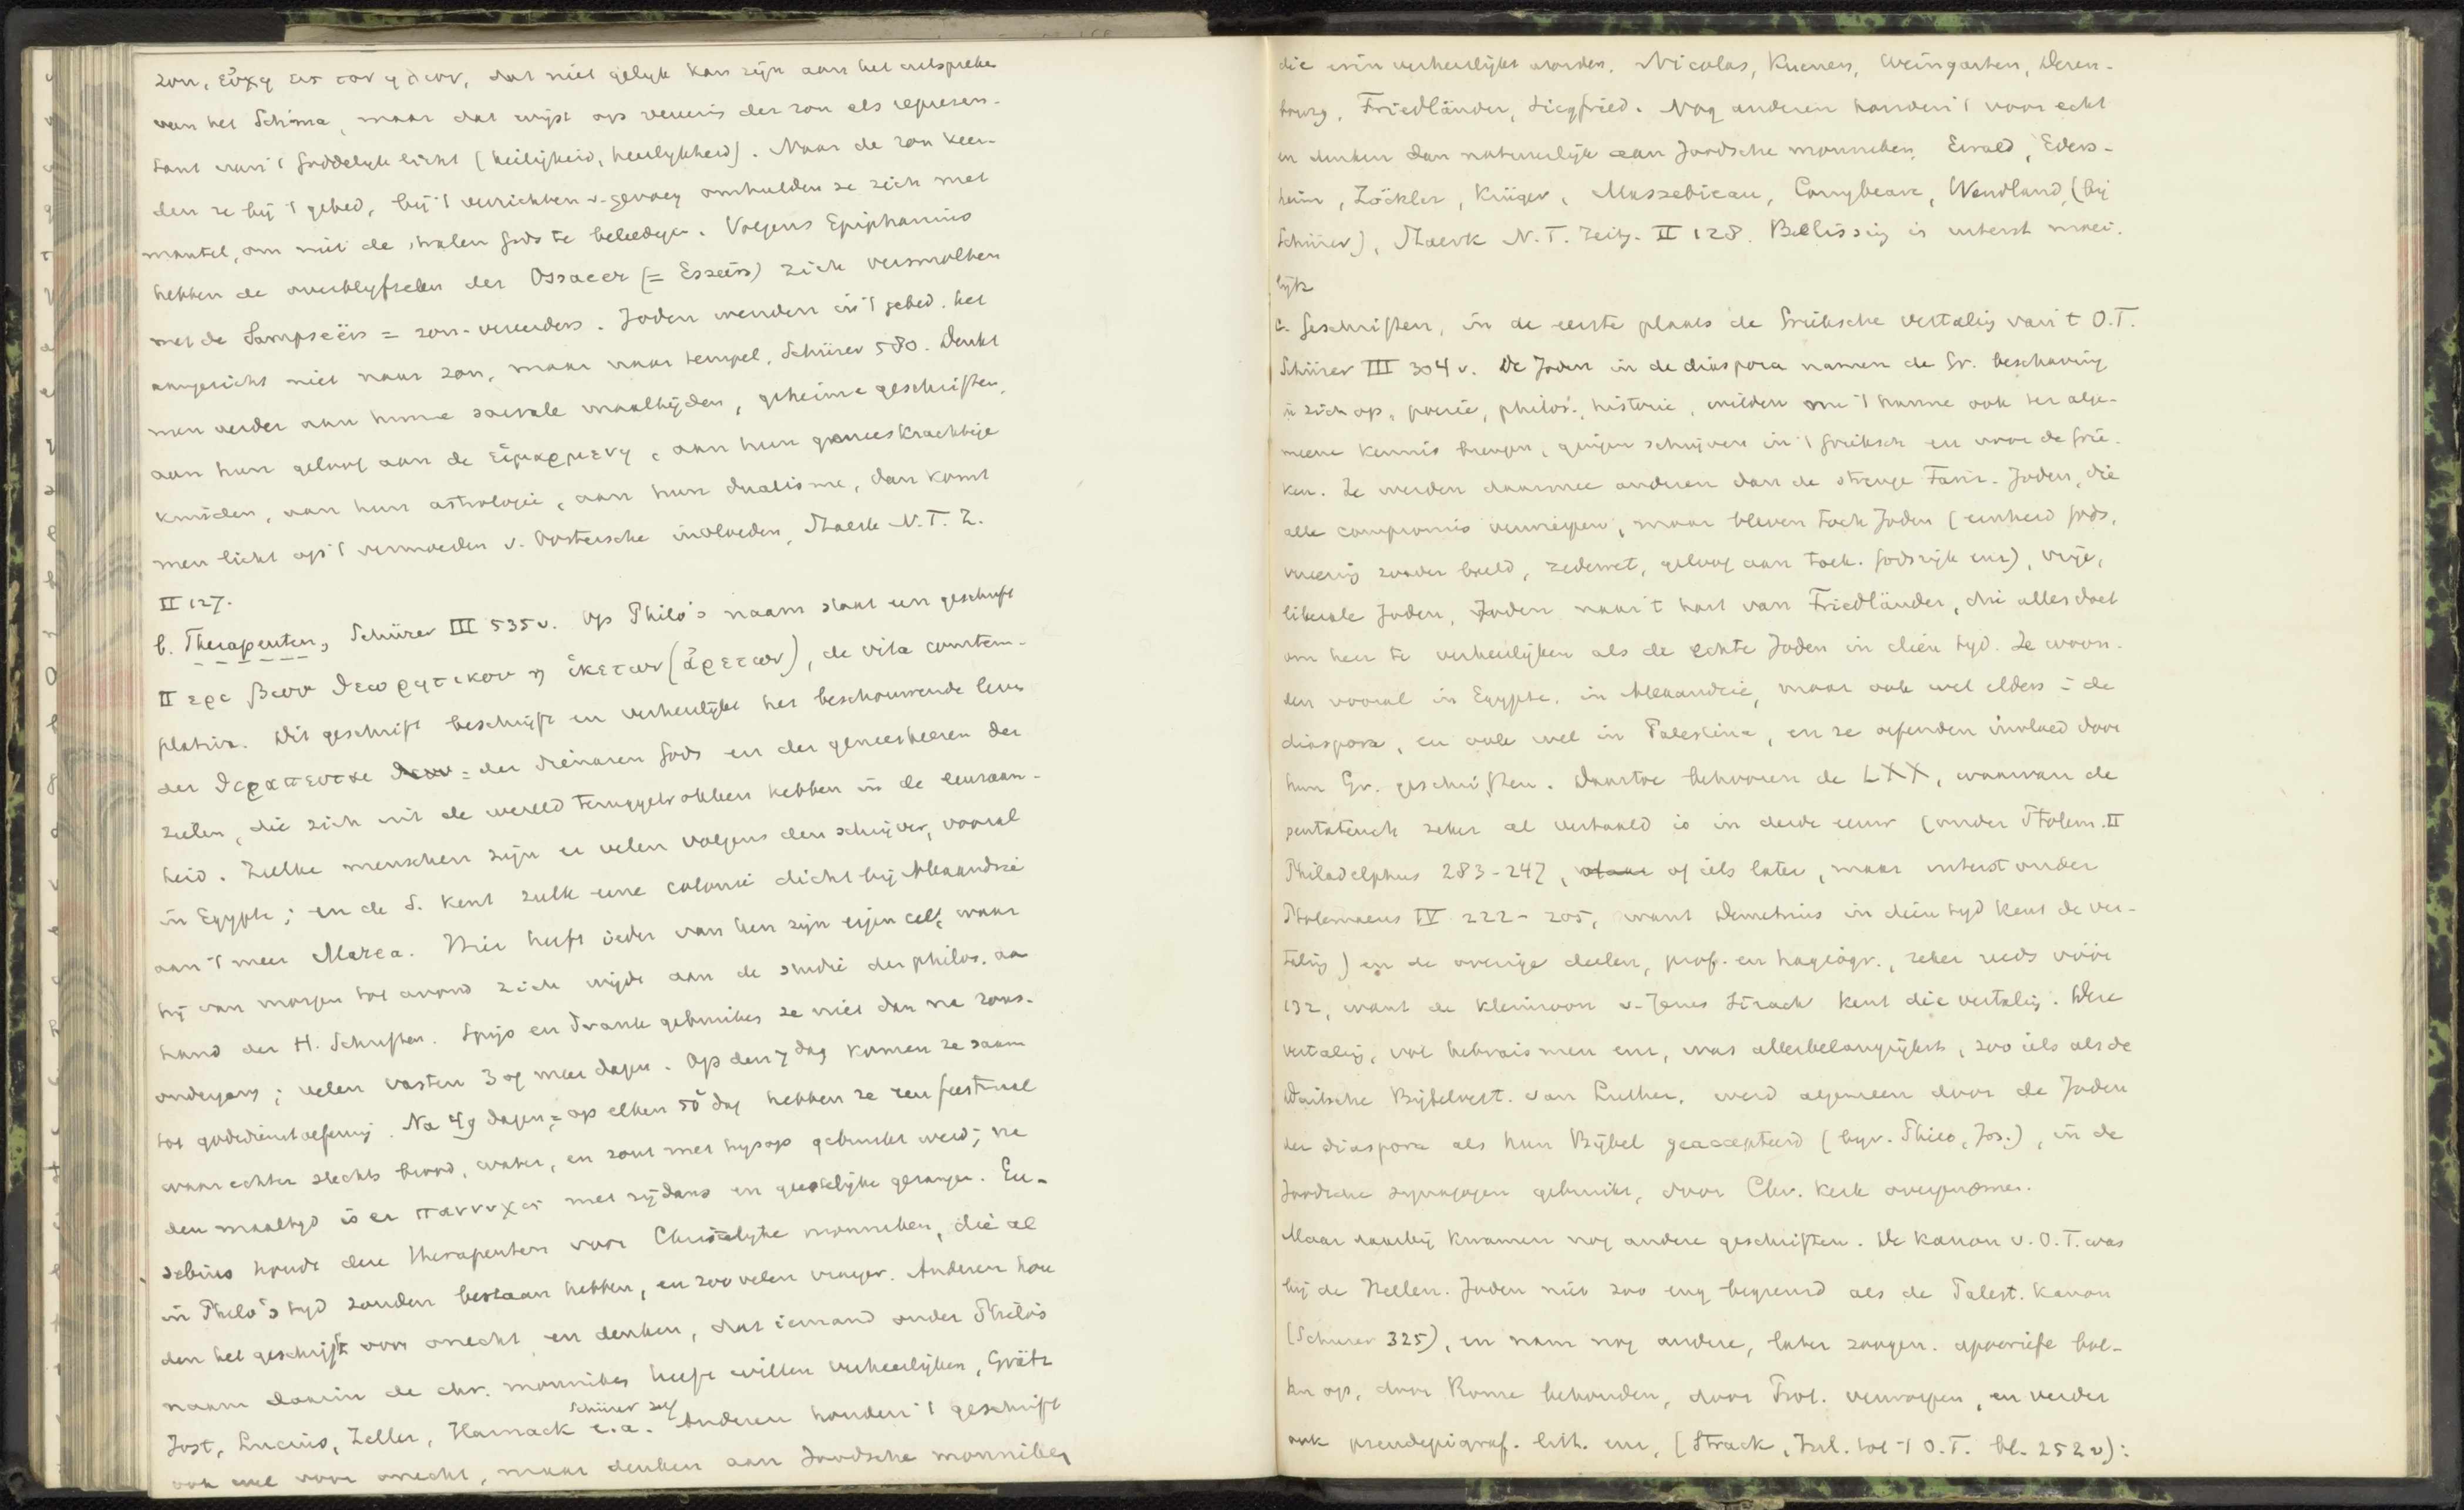 zon, εὐχη εις τον ηλιον, dat niet gelijk kan zijn aan het uitspreken
van het Schma, maar dat wijst op vereering der zon als represen-
tant van 't Goddelijk licht (heiligheid, heerlijkheid). Naar de zon keer-
den ze bij 't gebed, bij 't verrichten v. gevoeg omhulden ze zich met
mantel, om niet de stralen Gods te beleedigen. Volgens Epiphanius
hebben de overblijfselen der Ossaeer (= Esseërs) zich versmolten
met de Sampseërs = zon-vereerders. Joden wenden in 't gebed het
aangezicht niet naar zon, maar naar tempel, Schürer 580. Denkt
men verder aan hunne sacrale maaltijden, geheime geschriften,
aan hun geloof aan de εἱμαρμενη, aan hun geneeskrachtige
kruiden, aan hun astrologie, aan hun dualisme, dan komt
men licht op 't vermoeden v. Oostersche invloeden, Staerk N.T. Z.
II 127.
b. Therapeuten, Schürer III 535 v. Op Philo's naam staat een geschrift
Περι βιου θεωρητικου η ἱκετων (ἀρετων), de vita contem-
plativa. Dit geschrift beschrijft en verheerlijkt het beschouwende leven
der θεραπευται = der dienaren Gods en der geneesheeren der
zielen, die zich uit de wereld teruggetrokken hebben in de eenzaam-
heid. Zulke menschen zijn er velen volgens den schrijver, vooral
in Egypte; en de S. kent zulk eene colonie dicht bij Alexandrië
aan 't meer Marea. Hier heeft ieder van hen zijn eigen cel, waar
hij van morgen tot avond zich wijdt aan de studie der philos. aan
hand der H. Schriften. Spijs en drank gebruiken ze niet dan na zons-
ondergang; velen vasten 3 of meer dagen. Op den 7 dag komen ze saam
tot godsdienstoefening. Na 49 dagen = op elken 50 dag hebben ze een feestmaal
waar echter slechts brood, water, en zout met hysop gebruikt werd; na
den maaltijd is er παννυχις met rijdans en geestelijke gezangen. Eu-
sebius houdt deze therapeuten voor Christelijke monniken, die al
in Philo's tijd zouden bestaan hebben, en zoo velen vroeger. Anderen hou
den het geschrift voor onecht en denken, dat iemand onder Philo's
naam daarin de chr. monniken heeft willen verheerlijken, Grätz
Jost, Lucius, Zeller, Harnack Schürer zelf e.a. Anderen houden 't geschrift
ook wel voor onecht, maar denken aan Joodsche monniken
die erin verheerlijkt worden. Nicolas, Kuenen, Weingarten, Deren-
bourg, Friedländer, Siegfried. Nog anderen houden 't voor echt
en denken dan natuurlijk aan Joodsche monniken, Ewald, Eders-
heim, Zöckler, Krüger, Massebieau, Conybeare, Wendland, (bij
Schürer), Staerk N.T. Zeitg. II 128. Beslissing is uiterst moei-
lijk
c. Geschriften, in de eerste plaats de Grieksche vertaling van 't O.T.
Schürer III 304 v. De Joden in de diaspora namen de Gr. beschaving
in zich op, poezie, philos., historie, wilden nu 't hunne ook ter alge-
meene kennis brengen, gingen schrijven in 't Grieksch en voor de Grie-
ken. Ze werden daarmee anderen dan de strenge Fariz. Joden, die
alle compromis verwierpen, maar bleven toch Joden (eenheid Gods,
vereering zonder beeld, zedewet, geloof aan toek. Godsrijk enz), vrije,
liberale Joden, Joden naar 't hart van Friedländer, die alles doet
om hen te verheerlijken als de echte Joden in dien tijd. Ze woon-
den vooral in Egypte, in Alexandrië, maar ook wel elders in de
diaspora, en ook wel in Palestina, en ze oefenden invloed door
hun Gr. geschriften. Daartoe behooren de LXX, waarvan de
pentateuch zeker al vertaald is in derde eeuw (onder Ptolem. II
Philadelphus 283-247, of iets later, maar uiterst onder
Ptolemaeus IV 222-205, want Demetrius in dien tijd kent de ver-
taling) en de overige deelen, prof. en hagiogr., zeker reeds vóór
132, want de kleinzoon v. Jezus Sirach kent die vertaling. Deze
vertaling, vol hebraismen enz, was allerbelangrijkst, zoo iets als de
Duitsche Bijbelvert. van Luther, werd algemeen door de Joden
der diaspora als hun Bijbel geaccepteerd (bijv. Philo, Jos.), in de
Joodsche synagogen gebruikt, door Chr. Kerk overgenomen.
Maar daarbij kwamen nog andere geschriften. De kanon v. O.T. was
bij de Hellen. Joden niet zoo eng begrensd als de Palest. kanon
(Schurer 325), en nam nog andere, later zoogen. apocriefe boe-
ken op, door Rome behouden, door Prot. verworpen, en verder
ook pseudepigraf. litt. enz. (Strack, Inl. tot 't O.T. bl. 252 v):